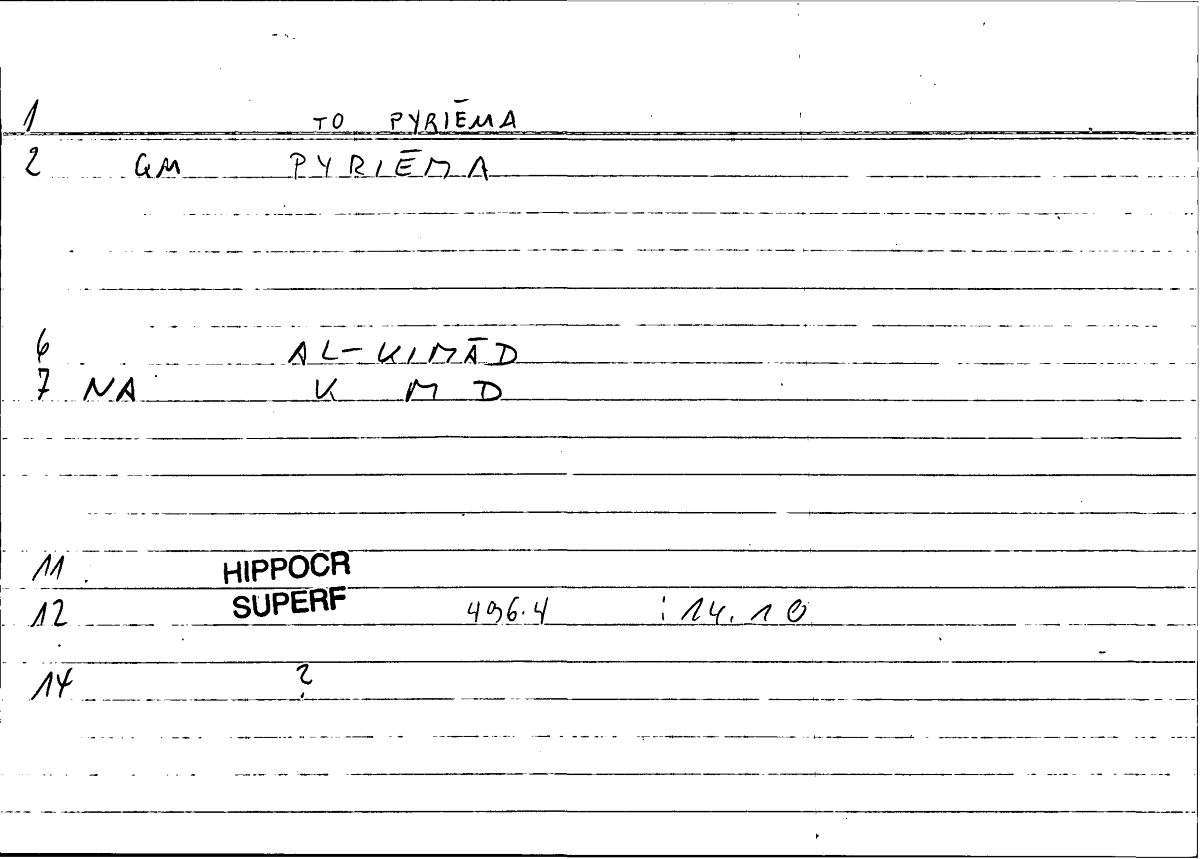 1 TO PYRIĒMA
2 GM PYRIĒMA
6 AL-KIMĀD
7 NA K M D
11 HIPPOCR
12 SUPERF 496.4 : 14.10
14 ?